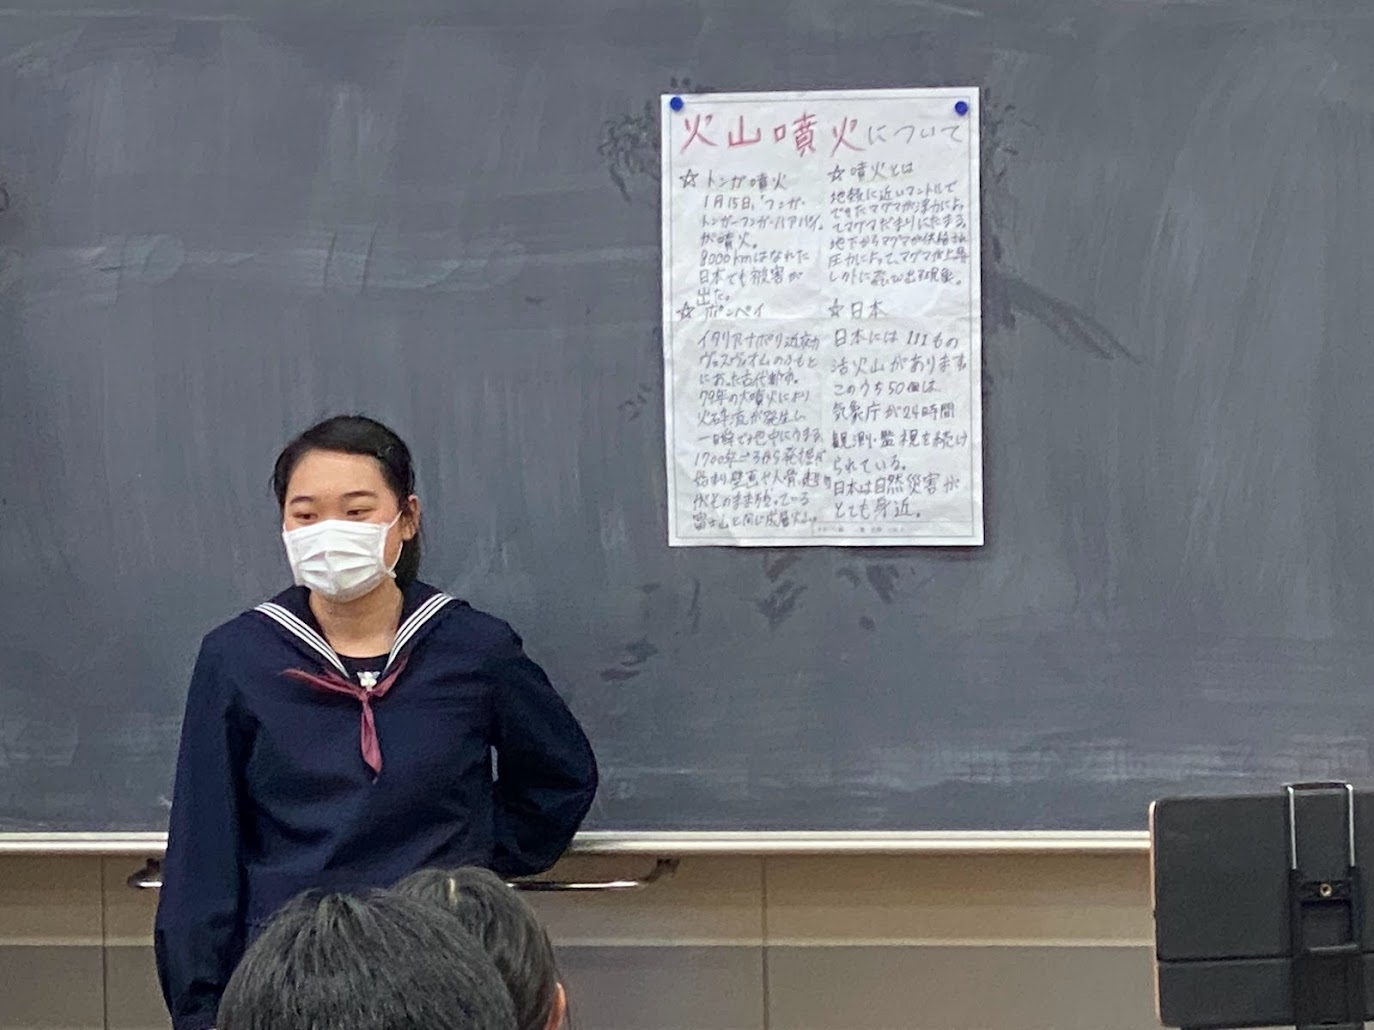 火山噴火について
☆トンガ噴火
1月15日、フンガ・
トンガーフンガ・ハアパイ
が噴火。
8000kmはなれた
日本でも被害が
出た。
☆ポンペイ
イタリア・ナポリ近郊
ヴェスヴィオ山のふもと
にあった古代都市。
79年の大噴火により
火砕流が発生し
一瞬で地中にうまる
1700年ごろから発掘が
始まり壁画や人骨、
がそのまま残っている
富士山と同じ成層火山。
☆噴火とは
地殻に近いマントルで
できたマグマが浮力によっ
てマグマだまりにたまる。
地下からマグマが供給され
圧力によって、マグマが上昇
し外に飛び出る現象。
☆日本
日本には111もの
活火山があります。
このうち50個は
気象庁が24時間
観測・監視を続け
られている。
日本は自然災害が
とても身近。